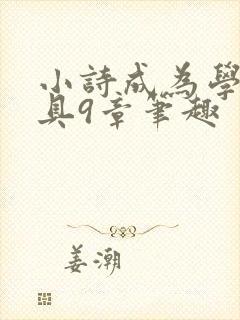 小詩成為學
具9章筆趣
姜潮